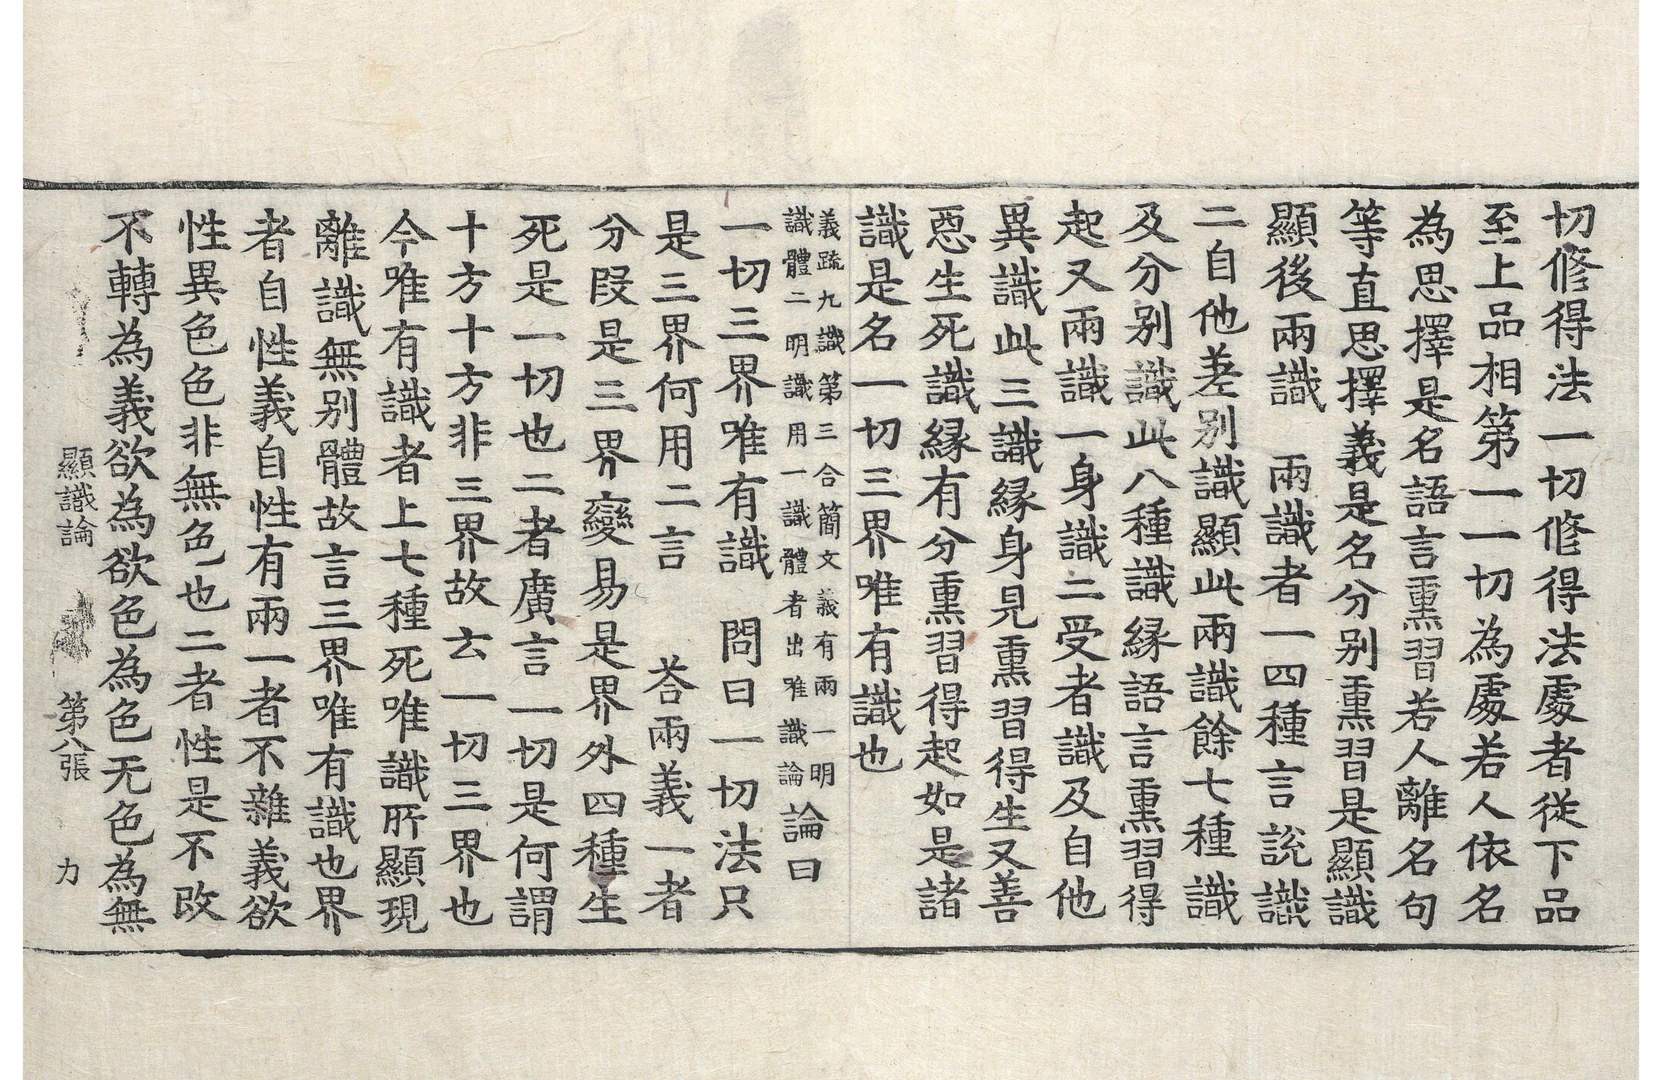 切修得法一切修得法處者從下品
至上品相第一一切為處若人依名
為思擇是名語言熏習若人離名句
等直思擇義是名分别熏習是顯識
顯後兩識　兩識者一四種言說識
二自他差别識顯此兩識餘七種識
及分别識此八種識縁語言熏習得
起又兩識一身識二受者識及自他
異識此三識縁身見熏習得生又善
惡生死識縁有分熏習得起如是諸
識是名一切三界唯有識也
義疏九識第三合簡文義有兩一明
識體二明識用一識體者出唯識論論曰
一切三界唯有識　問曰一切法只
是三界何用二言　荅兩義一者
分段是三界變易是界外四種生
死是一切也二者廣言一切是何謂
十方十方非三界故云一切三界也
今唯有識者上七種死唯識所顯現
離識無别體故言三界唯有識也界
者自性義自性有兩一者不雜義欲
性異色色非無色也二者性是不改
不轉為義欲為欲色為色无色為無
顯識論　第八張　力